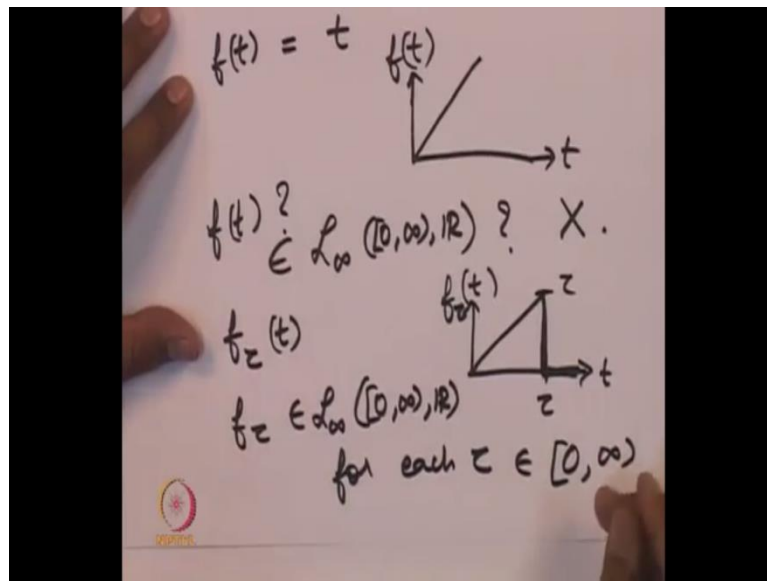 f(t) = t
f(t)
t
f(t) ?∈ L∞ ([0,∞), ℝ) ? X.
f_τ(t)
τ
f_τ(t)
t
τ
f_τ ∈ L∞ ([0,∞), ℝ)
for each τ ∈ [0,∞)
NPTEL